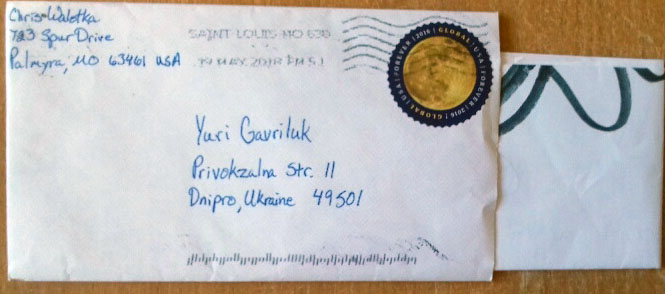 Chris Walotka
723 Spur Drive
Palmyra, MO 63461 USA
SAINT LOUIS MO 630
19 MAY 2018 PM 5 L
GLOBAL | USA | FOREVER | 2016 | GLOBAL | USA | FOREVER | 2016
Yuri Gavriluk
Privokzalna Str. 11
Dnipro, Ukraine 49501